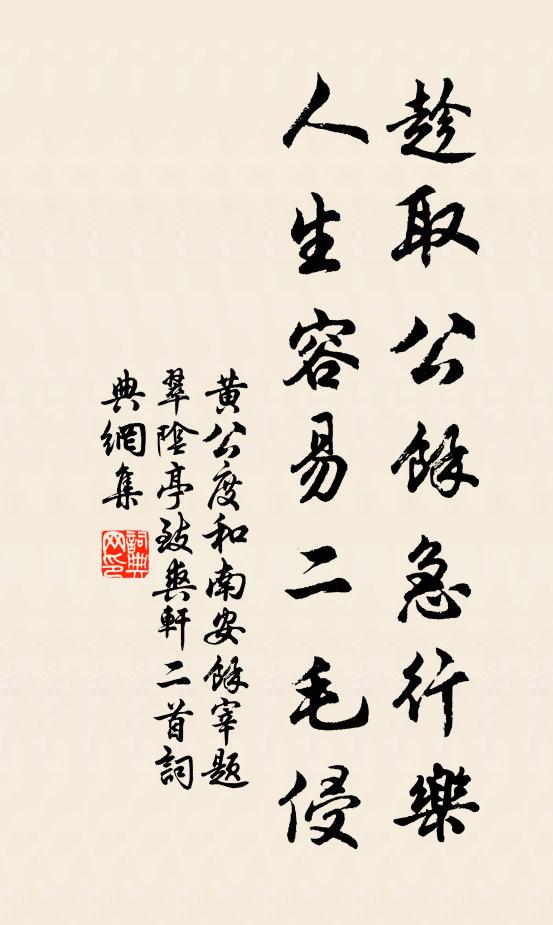 趁取公餘急行樂
人生容易二毛侵
黄公度和南安餘宰題
翠陰亭致爽軒二首詞
典網集
詞典网印